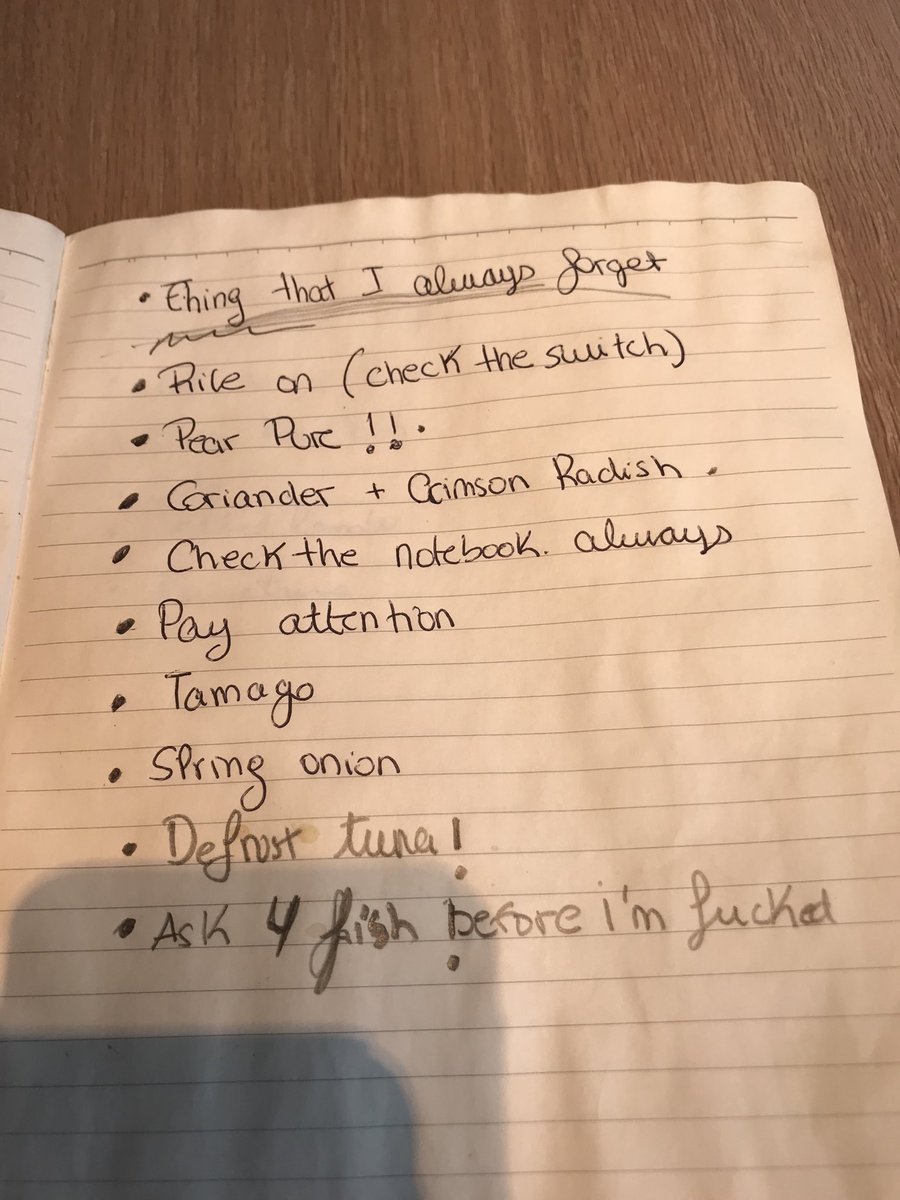 • Ehing that I always forget
• Rice on (check the switch)
• Pear Pure !!.
• Coriander + Crimson Radish .
• Check the notebook. always
• Pay attention
• Tamago
• Spring onion
• Defrost tuna!
• Ask 4 fish before i'm fucked